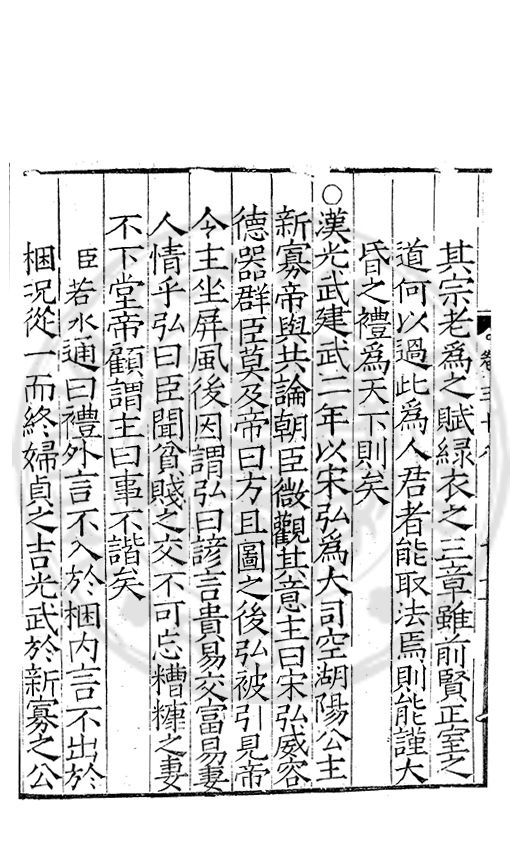 其宗老爲之賦緑衣之三章雖前賢正室之
道何以過此爲人君者能取法焉則能謹大
昏之禮爲天下則矣
○漢光武建武二年以宋弘爲大司空湖陽公主
新寡帝與共論朝臣微觀其意主曰宋弘威容
德器群臣莫及帝曰方且圖之後弘被引見帝
令主坐屏風後因謂弘曰諺言貴易交富易妻
人情乎弘曰臣聞貧賤之交不可忘糟糠之妻
不下堂帝顧謂主曰事不諧矣
臣若水通曰禮外言不入於梱内言不出於
梱况從一而終婦貞之吉光武於新寡之公